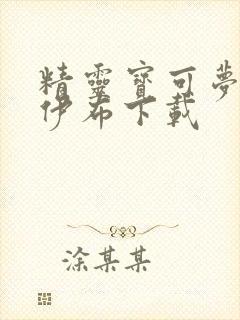 精靈寶可夢
伊布下載
涂某某